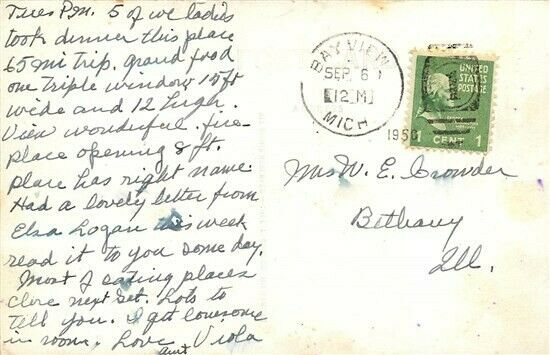 Tues P.M. 5 of we ladies
took dinner this place
65 mi trip. grand food
one Triple window 15 ft
wide and 12 high.
View wonderful. fire-
place opening 8 ft.
place has right name.
Had a lovely letter from
Elsa Logan this week
read it to you some day.
Most of eating places
close next Sat. Lots to
tell you. I get lonesome
in room. Love Aunt Viola
BAY VIEW
SEP 6
12 M
MICH
1950
UNITED
STATES
POSTAGE
CENT 1
Mrs W. E. Crowder
Bethany
Ill.